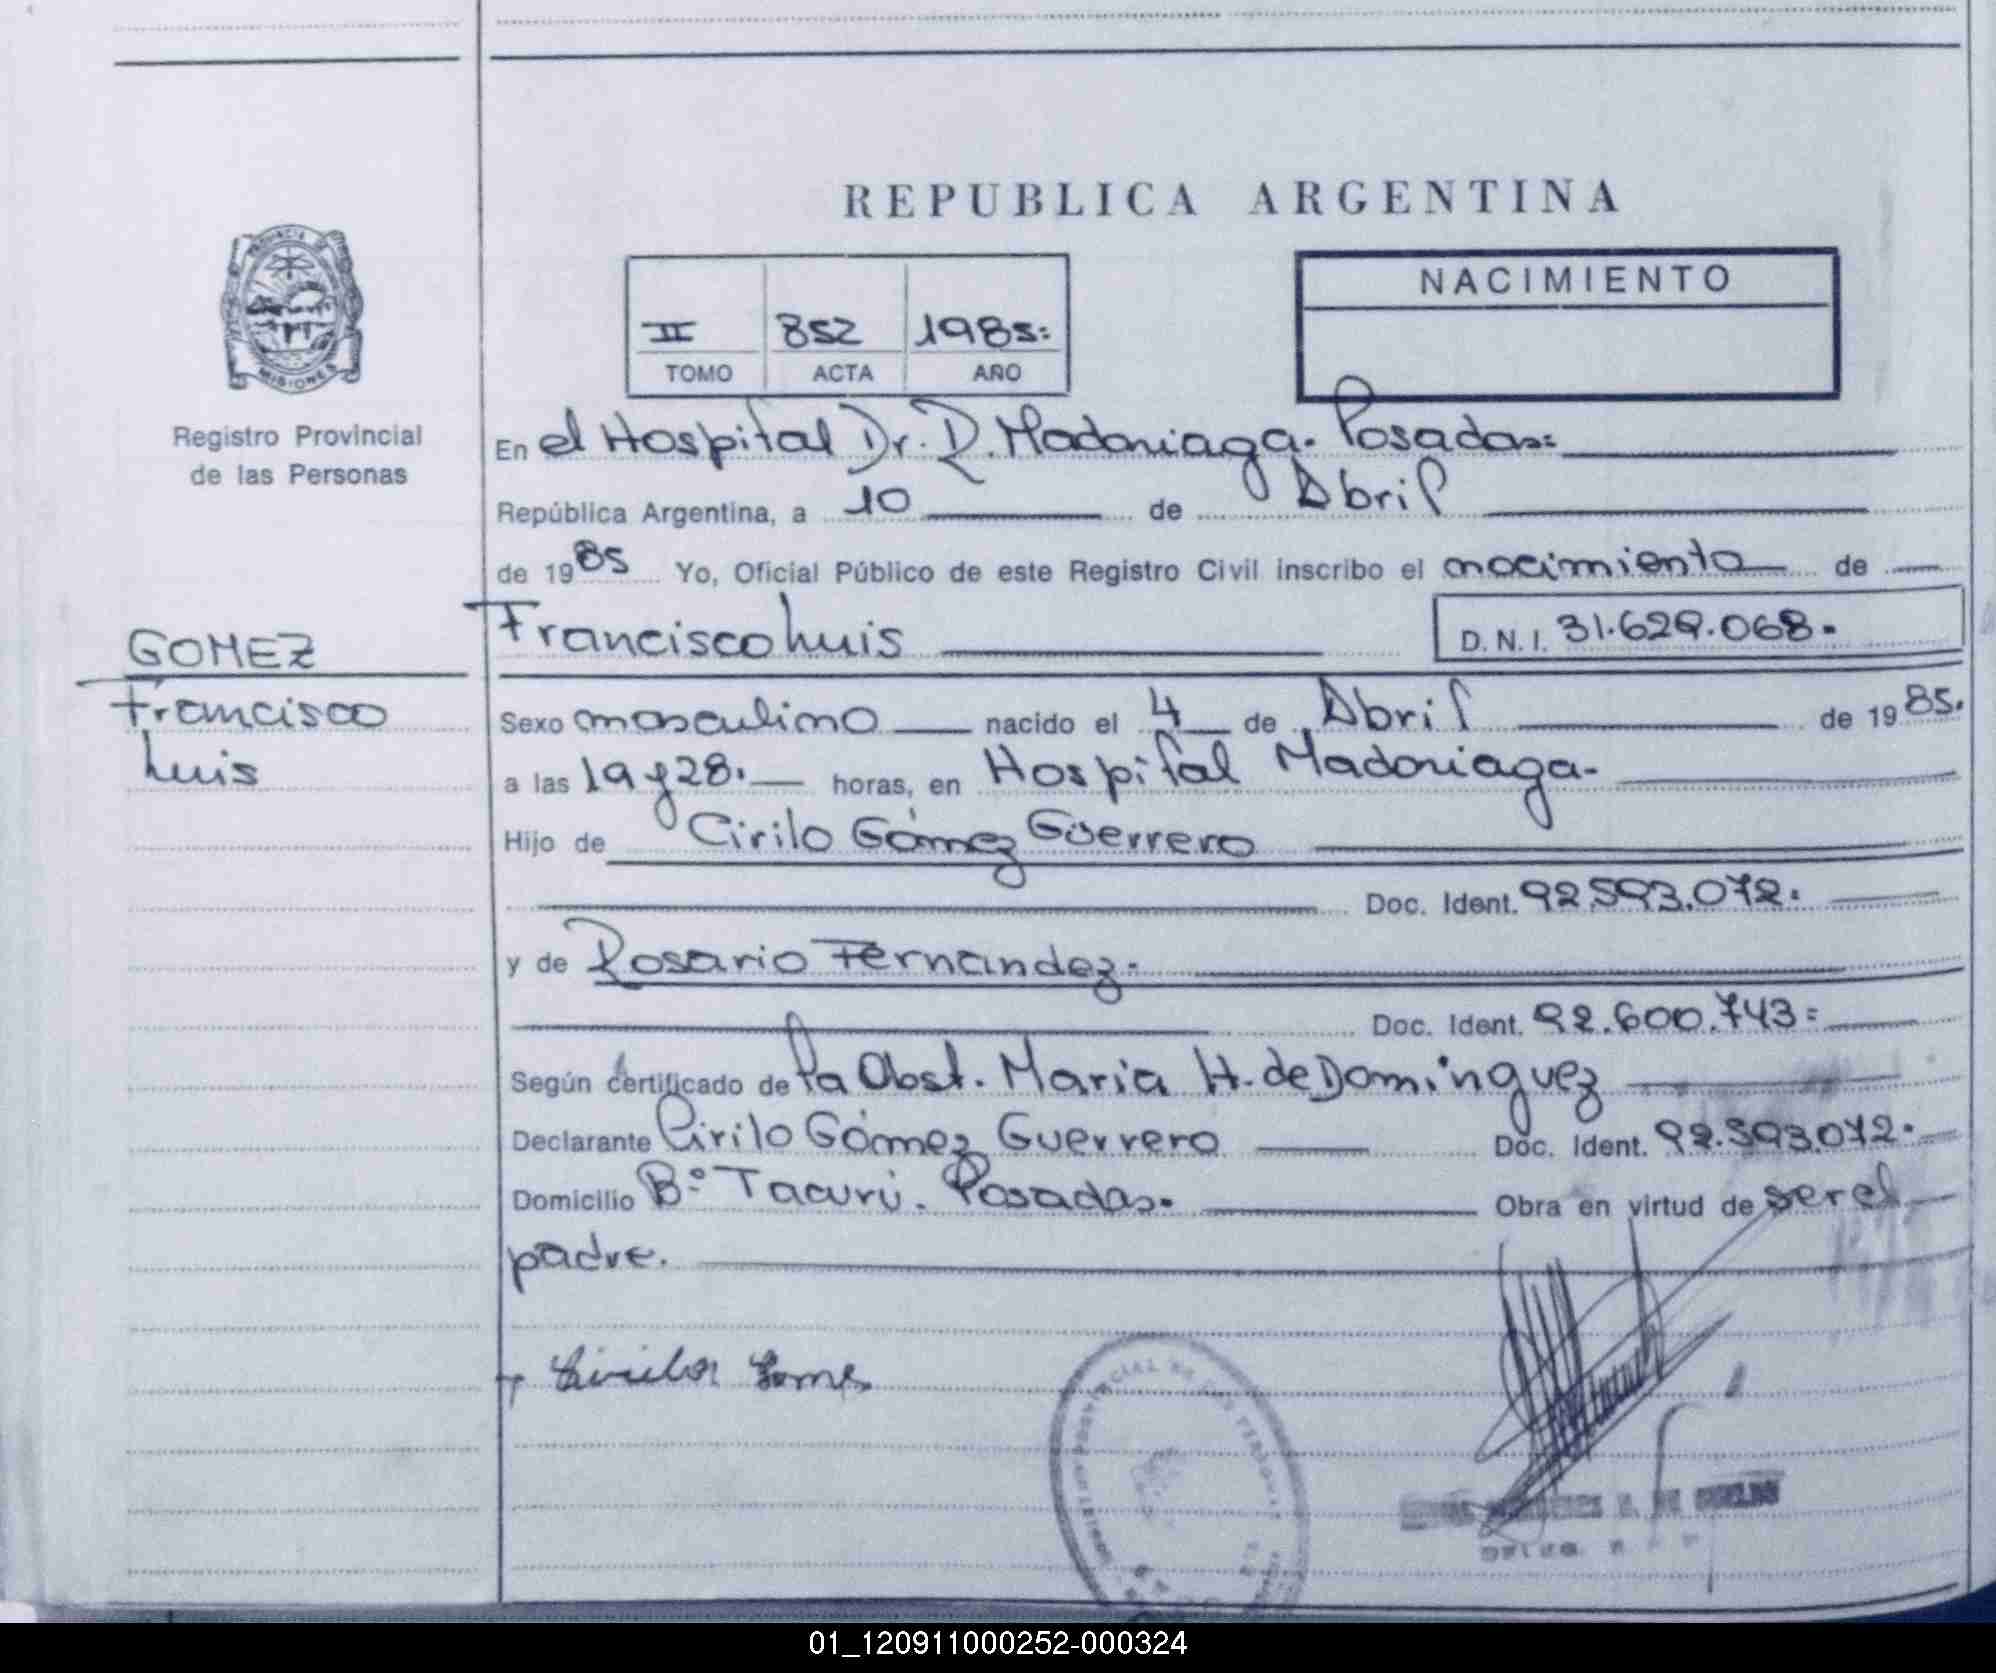 REPUBLICA ARGENTINA
PROVINCIA DE
MISIONES
Registro Provincial
de las Personas
II 852 1985=
TOMO ACTA AÑO
NACIMIENTO
En el Hospital Dr. R. Madariaga. Posadas=
República Argentina, a 10 de Abril
de 1985 Yo, Oficial Público de este Registro Civil inscribo el nacimiento de
GOMEZ
Francisco
Luis
Francisco Luis D.N.I. 31.629.068.
Sexo masculino nacido el 4 de Abril de 1985.
a las 19 y 28. horas, en Hospital Madariaga.
Hijo de Cirilo Gómez Guerrero
Doc. Ident. 92.593.072.
y de Rosario Fernández.
Doc. Ident. 92.600.743=
Según certificado de la Obst. Maria H. de Dominguez
Declarante Cirilo Gómez Guerrero Doc. Ident. 92.593.072.
Domicilio B° Tacurú. Posadas. Obra en virtud de ser el
padre.
01_120911000252-000324